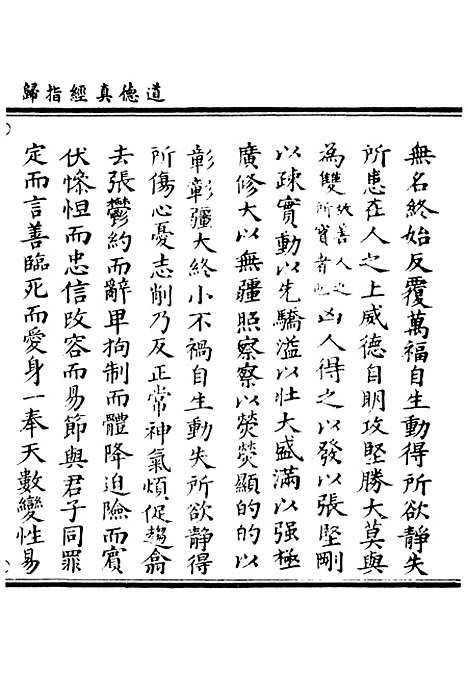 道德真經指歸
無名終始反覆萬福自生動得所欲靜失
所患在人之上威德自明攻堅勝大莫與
為雙故善人之所寶者也凶人得之以發以張堅剛
以疎實動以先驕溢以壯大盛滿以强極
廣修大以無疆照察察以熒熒顯的的以
彰彰彊大終小不禍自生動失所欲靜得
所傷心憂志削乃反正常神氣煩促趨翕
去張鬱約而辭卑拘制而體降迫險而賓
伏慘怛而忠信改容而易節與君子同罪
定而言善臨死而愛身一奉天數變性易